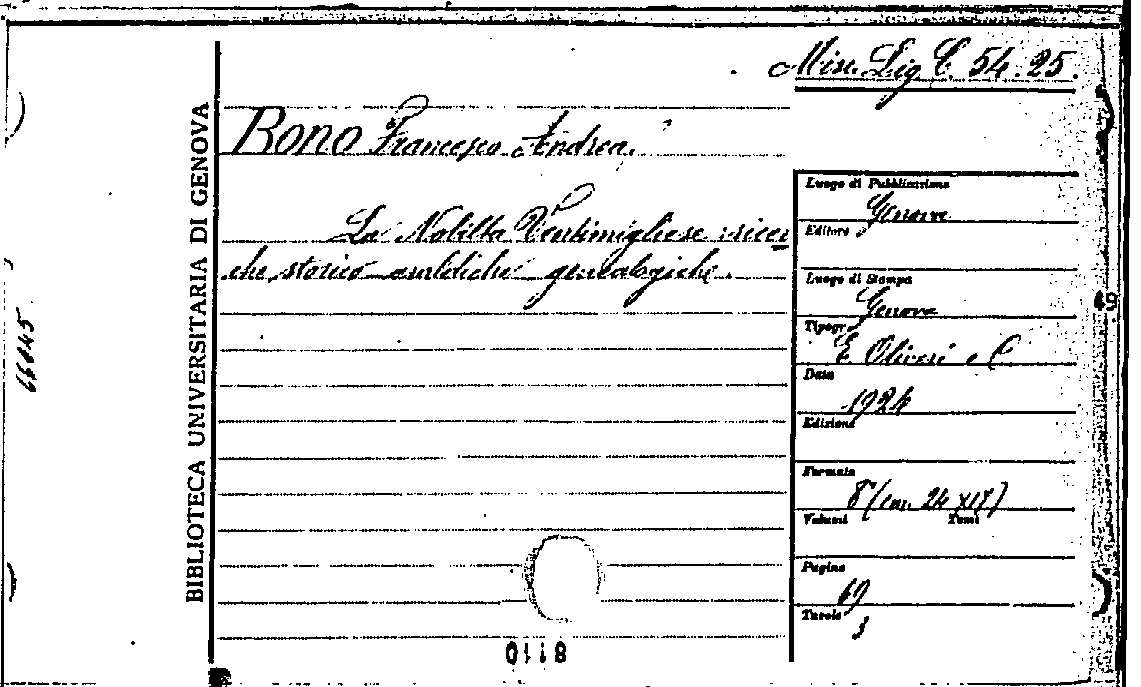 Misc. Lig. C. 54.25.
BIBLIOTECA UNIVERSITARIA DI GENOVA
Bono Francesco Andrea.
La Nobiltà Ventimigliese: ricer
che storico araldiche genealogiche.
Luogo di Pubblicazione
Genova
Editore
Luogo di Stampa
Genova
Tipogr.
E. Olivieri e C.
Data
1924
Edizione
Formato
8° (cm. 24 x 17)
Volumi Tomi
Pagine
69
Tavole
3
0118